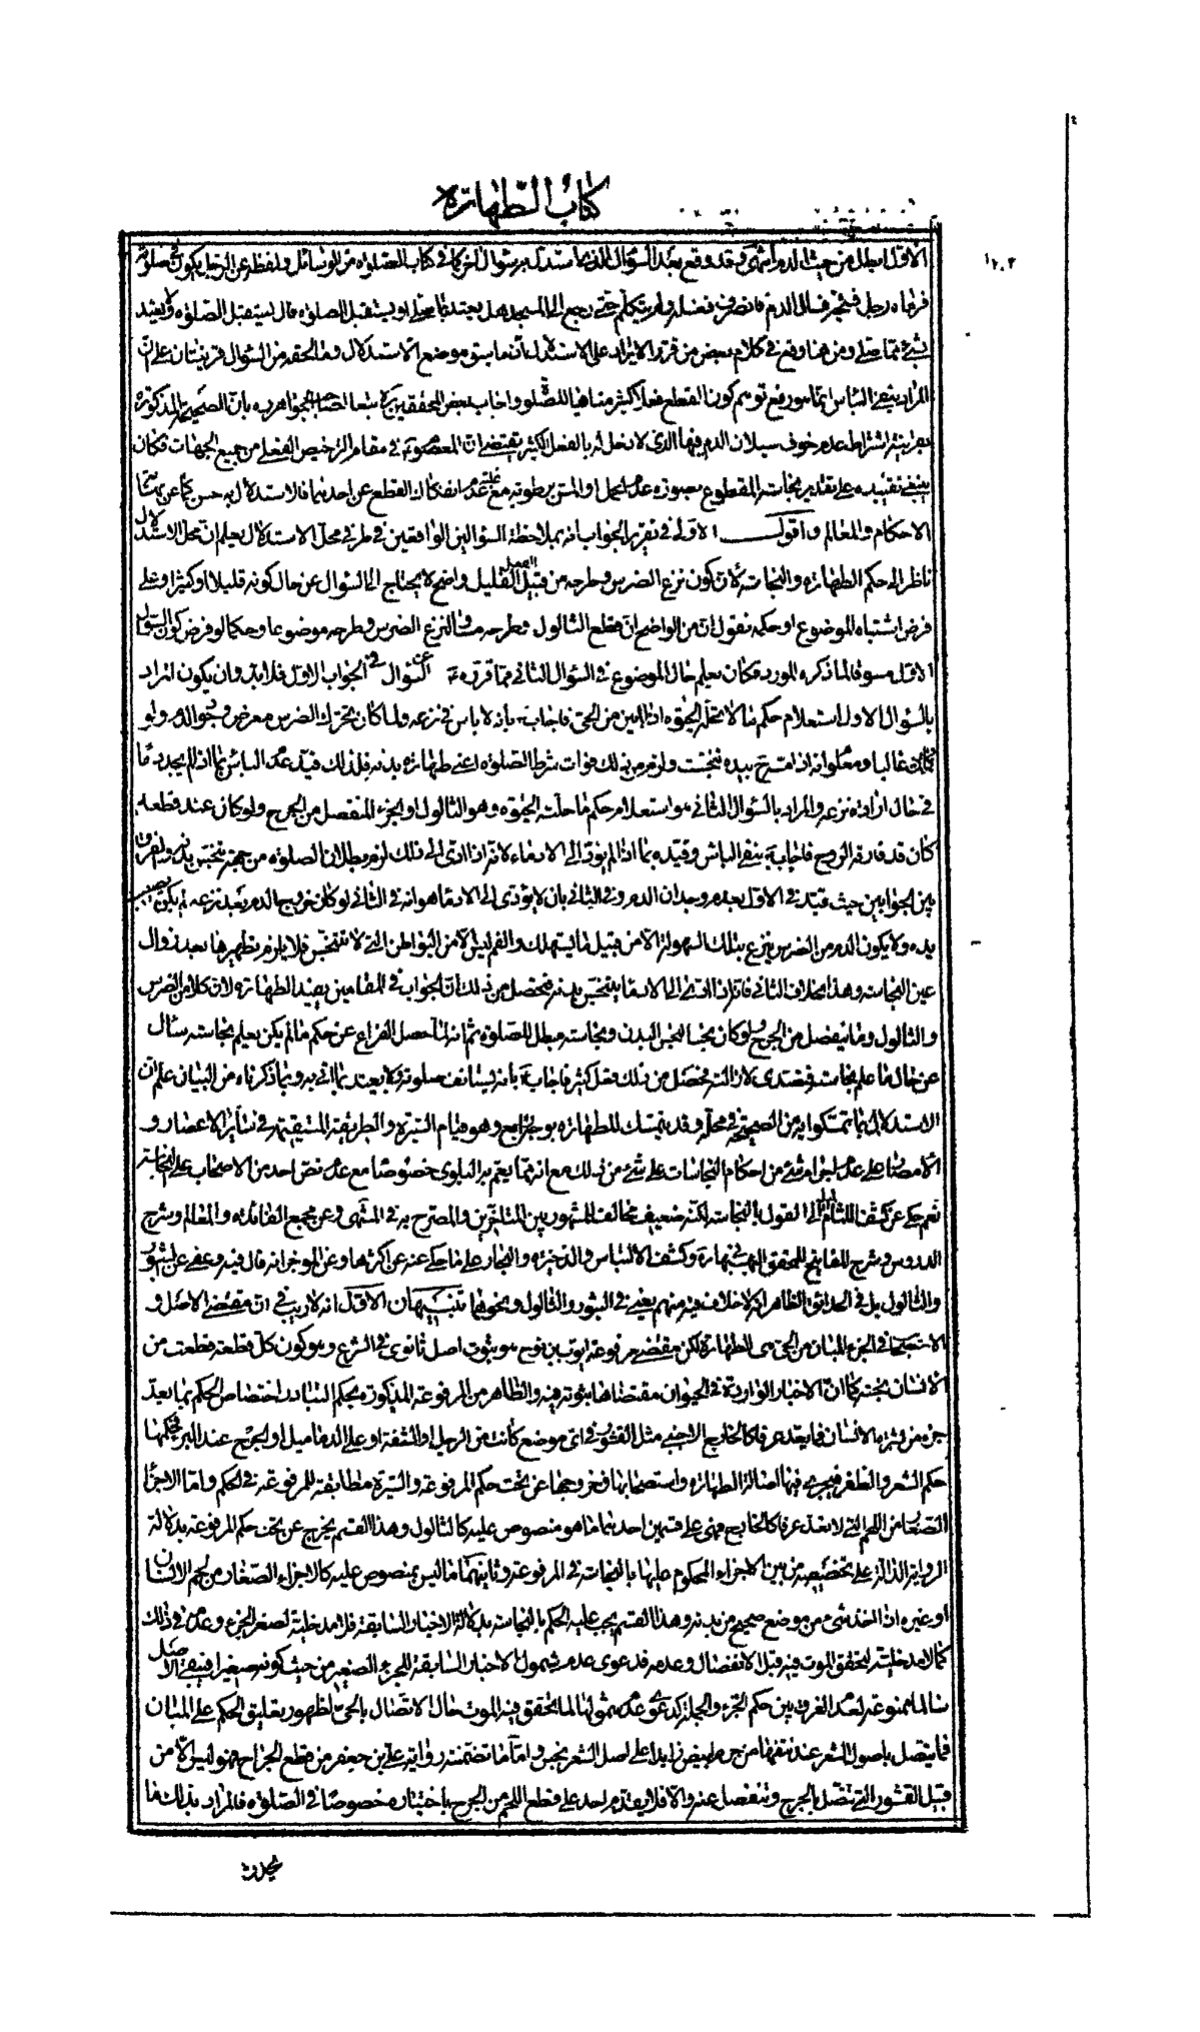 كتاب الطهارة
الأول مبطل من حيث الدم انتهى وقد وقع بعد السؤال الذى استدل به سؤال اخر كما فى كتاب الصلوة من الوسائل ولفظه عن الرجل يكون فى صلوته
فرماه رجل فشجه فسال الدم فانصرف فغسله ولم يتكلم حتى رجع الى المسجد هل يعتد بما صلى او يستقبل الصلوة قال يستقبل الصلوة ولا يعتد
بشئ مما صلى ومن هنا وقع فى كلام بعض من قرر الايراد على الاستدلال ان ما سبق موضع الاستدلال وما لحقه من السؤال قرينتان على ان
المراد بنفى الباس انما هو رفع توهم كون القطع فعلا كثيرا منافيا للصلوة واجاب بعض المحققين تبعا لصاحب الجواهر به بان الصحيحة المذكورة
بقرينة اشتراط عدم خوف سيلان الدم فيها الذى لا دخل له بالفعل الكثير تقتضى ان المعصوم فى مقام الترخيص الفعلى من جميع الجهات فكان
ينبغى تقييده على تقدير نجاسة المقطوع بصورة عدم الحمل او المس برطوبة مع عدم انفكاك القطع عن احدهما فالاستدلال به حسن كما عن
الاحكام والمعالم واقول الاولى فى تقرير الجواب انه بملاحظة السؤالين الواقعين فى طرفى محل الاستدلال يعلم ان محل الاستدلال
ناظر الى حكم الطهارة والنجاسة لان كون نزع الضرس وطرحه من قبيل الفعل القليل واضح لا يحتاج الى السؤال عن حال كونه قليلا او كثيرا وعلى
فرض اشتباه الموضوع او حكمه نقول ان من الواضح ان قطع الثالول وطرحه مساو لنزع الضرس وطرحه موضوعا وحكما لو فرض كون السؤال
الاول مسوقا لما ذكره المورد فكان يعلم حال الموضوع فى السؤال الثانى مما قرره عن السؤال فى الجواب الاول فلا بد وان يكون المراد
بالسؤال الاول استعلام حكم ما لا تحله الحيوة اذا ابين من الحى فاجاب بانه لا باس فى نزعه ولما كان تحرك الضرس معرض وجود الدم ولو
غالبا ومعلوم انه اذا مسح بيده تنجست ولزم من ذلك فوات شرط الصلوة اعنى طهارة بدنه فلذلك قيد عدم الباس بما اذا لم يجد دما
فى حال ارادة نزعه والمراد بالسؤال الثانى هو استعلام حكم ما حلته الحيوة وهو الثالول او الجزء المنفصل من الجرح ولو كان عند قطعه
كان قد فارقه الروح فاجاب بنفى الباس وقيده بما اذا لم يؤد الى الادماء لانه اذا ادى الى ذلك لزم بطلان الصلوة من جهة تنجس بدنه والفرق
بين الجوابين حيث قيد فى الاول بعدم وجدان الدم وفى الثانى بان لا يؤدى الى الادماء هو انه فى الثانى لو كان خروج الدم بعد نزعه لم يكن يصيب
يده ولا يكون الدم من الضرس ينزع بتلك السهولة الا من قبيل ما يستهلك والفم ليس الا من البواطن التى لا تتنجس فلا يلزم تطهيرها بعد زوال
عين النجاسة وهذا بخلاف الثانى فانه اذا ادى الى الادماء يتنجس بدنه فتحصل من ذلك ان الجواب فى المقامين يفيد الطهارة لان كلا من الضرس
والثالول وما ينفصل من الجرح لو كان نجسا لنجس البدن ونجاسته مبطل للصلوة ثم انه لما حصل الفراغ عن حكم ما لم يكن يعلم نجاسته سئل
عن حال ما علم نجاسته فتصدى لازالته فحصل من ذلك فعل كثير فاجاب بانه يستانف صلوته ولا يعتد بما اتى به وبما ذكرناه من البيان علم ان
الاستدلال بما تمسكوا به من الصحيحة فى محله وقد يتمسك للطهارة بوجه رابع وهو قيام السيرة والطريقة المستقيمة فى سائر الاعصار و
الامصار على عدم اجراء شئ من احكام النجاسات على شئ من ذلك مع انه مما يعم به البلوى خصوصا مع عدم نص احد من الاصحاب على النجاسة
نعم حكى عن كشف اللثام الميل الى القول بالنجاسة لكنه ضعيف مخالف للمشهور بين المتاخرين والمصرح به فى المنتهى وعن مجمع الفائدة والمعالم وشرح
الدروس وشرح المفاتيح للمحقق البهبهانى وكشف الالتباس والذخيرة والبحار على ما حكى عنه عن اكثرها وعن الموجز انه قال فيه وعفى عن البثور
والثالول بل فى الحدائق الظاهر انه لا خلاف فيه منهم يعنى فى البثور والثالول ونحوهما تنبيهان الاول انه لا ريب فى ان مقتضى الاصل و
الاستصحاب فى الجزء المبان من الحى هى الطهارة لكن مقتضى مرفوعة ايوب بن نوح هو ثبوت اصل ثانوى فى الشرع وهو كون كل قطعة قطعت من
الانسان نجسة كما ان الاخبار الواردة فى الحيوان مقتضاها ثبوته فيه والظاهر من المرفوعة المذكورة بحكم التبادر اختصاص الحكم بما يعد
جزء من بشرة الانسان فما يعد عرفا كالخارج الاجنبى مثل القشور فى اى موضع كانت من الرجل او الشفة او على الدماميل او الجرح عند البرء فحكمها
حكم الشعر والظفر فيجرى فيها اصالة الطهارة واستصحابها فخروجها عن تحت حكم المرفوعة والسيرة مطابقة للمرفوعة فى الحكم واما الاجزاء
الصغار من اللحم التى لا تعد عرفا كالخارج فهى على قسمين احدهما ما هو منصوص عليه كالثالول وهذا القسم يخرج عن تحت حكم المرفوعة بدلالة
الرواية الدالة على تخصيصه من بين الاجزاء المحكوم عليها بالنجاسة فى المرفوعة وثانيهما ما ليس بمنصوص عليه كالاجزاء الصغار من لحم الانسان
او غيره اذا اخذ شئ من موضع صحيح من بدنه وهذا القسم يجب عليه الحكم بالنجاسة بدلالة الاخبار السابقة فلا مدخلية لصغر الجزء وعدمه فى ذلك
كما لا مدخلية لتحقق الموت فيه قبل الانفصال وعدمه فدعوى عدم شمول الاخبار السابقة للجزء الصغير من حيث كونه صغيرا فيبقى الاصل
سالما ممنوعة لعدم الفرق بين حكم الجزء والجملة كدعوى عدم شمولها لما لم يتحقق فيه الموت حال الاتصال بالحى لظهور تعليق الحكم على المبان
فما يتصل باصول الشعر عند نتفها من جرم ابيض زايدا على اصل الشعر نجس واما ما تضمنته رواية على بن جعفر من قطع الجراح فهو ليس الا من
قبيل القشور التى تتصل بالجرح وتنفصل عنه والا فلا يقدم احد على قطع اللحم من الجرح باختياره خصوصا فى الصلوة فالمراد بذلك ما